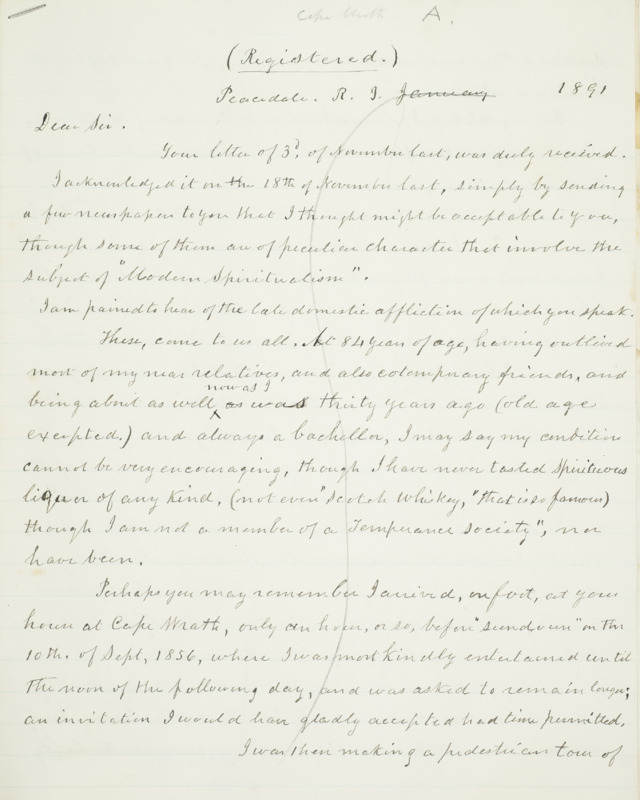 Cape Wrath A.
(Registered.)
Peacedale. R. I. January 1891
Dear Sir.
Your letter of 3d, of November last, was duly received.
I acknowledged it on the 18th of November last, simply by sending
a few newspapers to you that I thought might be acceptable to you,
though some of them are of peculiar character that involve the
subject of "Modern Spiritualism".
I am pained to hear of the late domestic affliction of which you speak.
These, come to us all. At 84 years of age, having outlived
most of my near relatives, and also cotemporary friends, and
now as I
being about as well, as was thirty years ago (old age
excepted.) and always a bachellor, I may say my condition
cannot be very encouraging, though I have never tasted Spirituous
liquor of any kind, (not even "Scotch Whiskey," that is so famous)
though I am not a member of a Temperance society", nor
have been.
Perhaps you may remember I arrived, on foot, at your
house at Cape Wrath, only an hour, or so, before "sundown" on the
10th. of Sept, 1856, where I was most kindly entertained until
the noon of the following day, and was asked to remain longer;
an invitation I would have gladly accepted had time permitted.
I was then making a pedestrian tour of